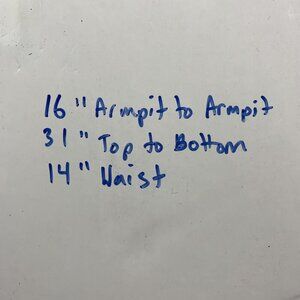 16" Armpit to Armpit
31" Top to Bottom
14" Waist